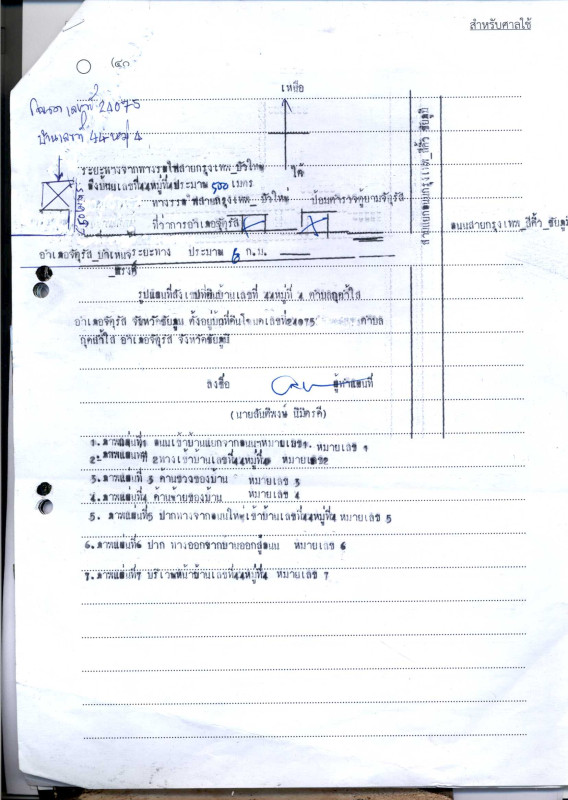 สำหรับศาลใช้
(๔๓
เหนือ
โฉนด เลขที่ 24075
บ้านเลขที่ 44 หมู่ 4
ระยะทางจากทางรถไฟสายกรุงเทพ_บัวใหญ่
ใต้
ถึงบ้านเลขที่44หมู่ที่4ประมาณ 500 เมตร
ทางรถไฟสายกรุงเทพ_บัวใหญ่ ป้อมตำรวจภูธรจัตุรัส
ที่ว่าการอำเภอจัตุรัส
ถนนสายกรุงเทพ_สีคิ้ว_ชัยภูมิ
อำเภอจัตุรัส บำเหน็จ
ระยะทาง ประมาณ 6 ก.ม.
_ณรงค์
รูปแผนที่สังเขปที่ดินบ้านเลขที่ 44หมู่ที่ 4 ตำบลกุดน้ำใส
อำเภอจัตุรัส จังหวัดชัยภูมิ ตั้งอยู่บนที่ดินโฉนดเลขที่24075 ตำบล
กุดน้ำใส อำเภอจัตุรัส จังหวัดชัยภูมิ
ลงชื่อ ผู้ทำแผนที่
(นายสันติพงษ์ นิมิตรดี)
1.ภาพแผ่นที่1 ถนนเข้าบ้านแยกจากถนน หมายเลข 1
2.ภาพแผ่นที่ 2ทางเข้าบ้านเลขที่44หมู่ที่4 หมายเลข2
3.ภาพแผ่นที่ 3 ด้านขวาของบ้าน หมายเลข 3
4.ภาพแผ่นที่4 ด้านซ้ายของบ้าน หมายเลข 4
5. ภาพแผ่นที่5 ปากทางจากถนนใหญ่เข้าบ้านเลขที่44หมู่ที่4 หมายเลข 5
6.ภาพแผ่นที่6 ปาก ทางออกจากบ้านออกสู่ถนน หมายเลข 6
7.ภาพแผ่นที่7 บริเวณหน้าบ้านเลขที่44หมู่ที่4 หมายเลข 7